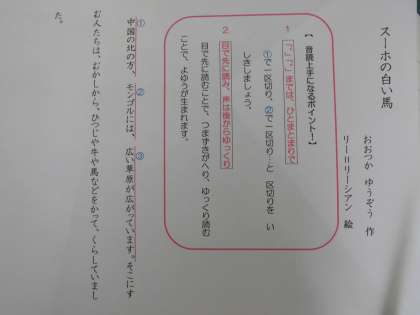 スーホの白い馬
おおつか ゆうぞう 作
リー＝リーシアン 絵
【 音読上手になるポイント！】
１ 「、」「。」までは、ひとまとまりで
①で一区切り、②で一区切り…と 区切りを い
しきしましょう。
２ 目で先に読み、声は後からゆっくり
目で先に読むことで、つまずきがへり、ゆっくり読む
ことで、よゆうが生まれます。
① ② ③
中国の北の方、モンゴルには、広い草原が広がっています。そこにす
む人たちは、むかしから、ひつじや牛や馬などをかって、くらしていまし
た。